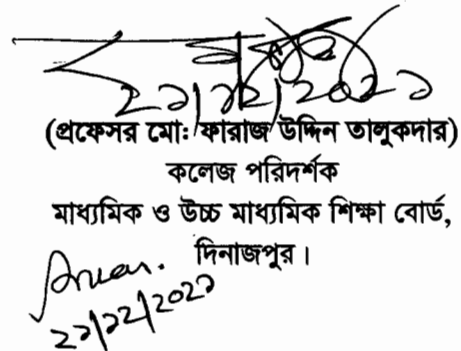 ২১/১২/২০২১
(প্রফেসর মো: ফারাজ উদ্দিন তালুকদার)
কলেজ পরিদর্শক
মাধ্যমিক ও উচ্চ মাধ্যমিক শিক্ষা বোর্ড,
দিনাজপুর।
২১/১২/২০২১